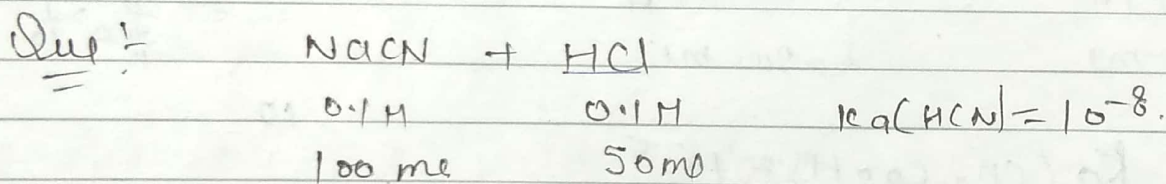 Que :-  NaCN + HCl
0.1 M  0.1 M  Ka(HCN) = 10⁻⁸.
100 ml  50 ml